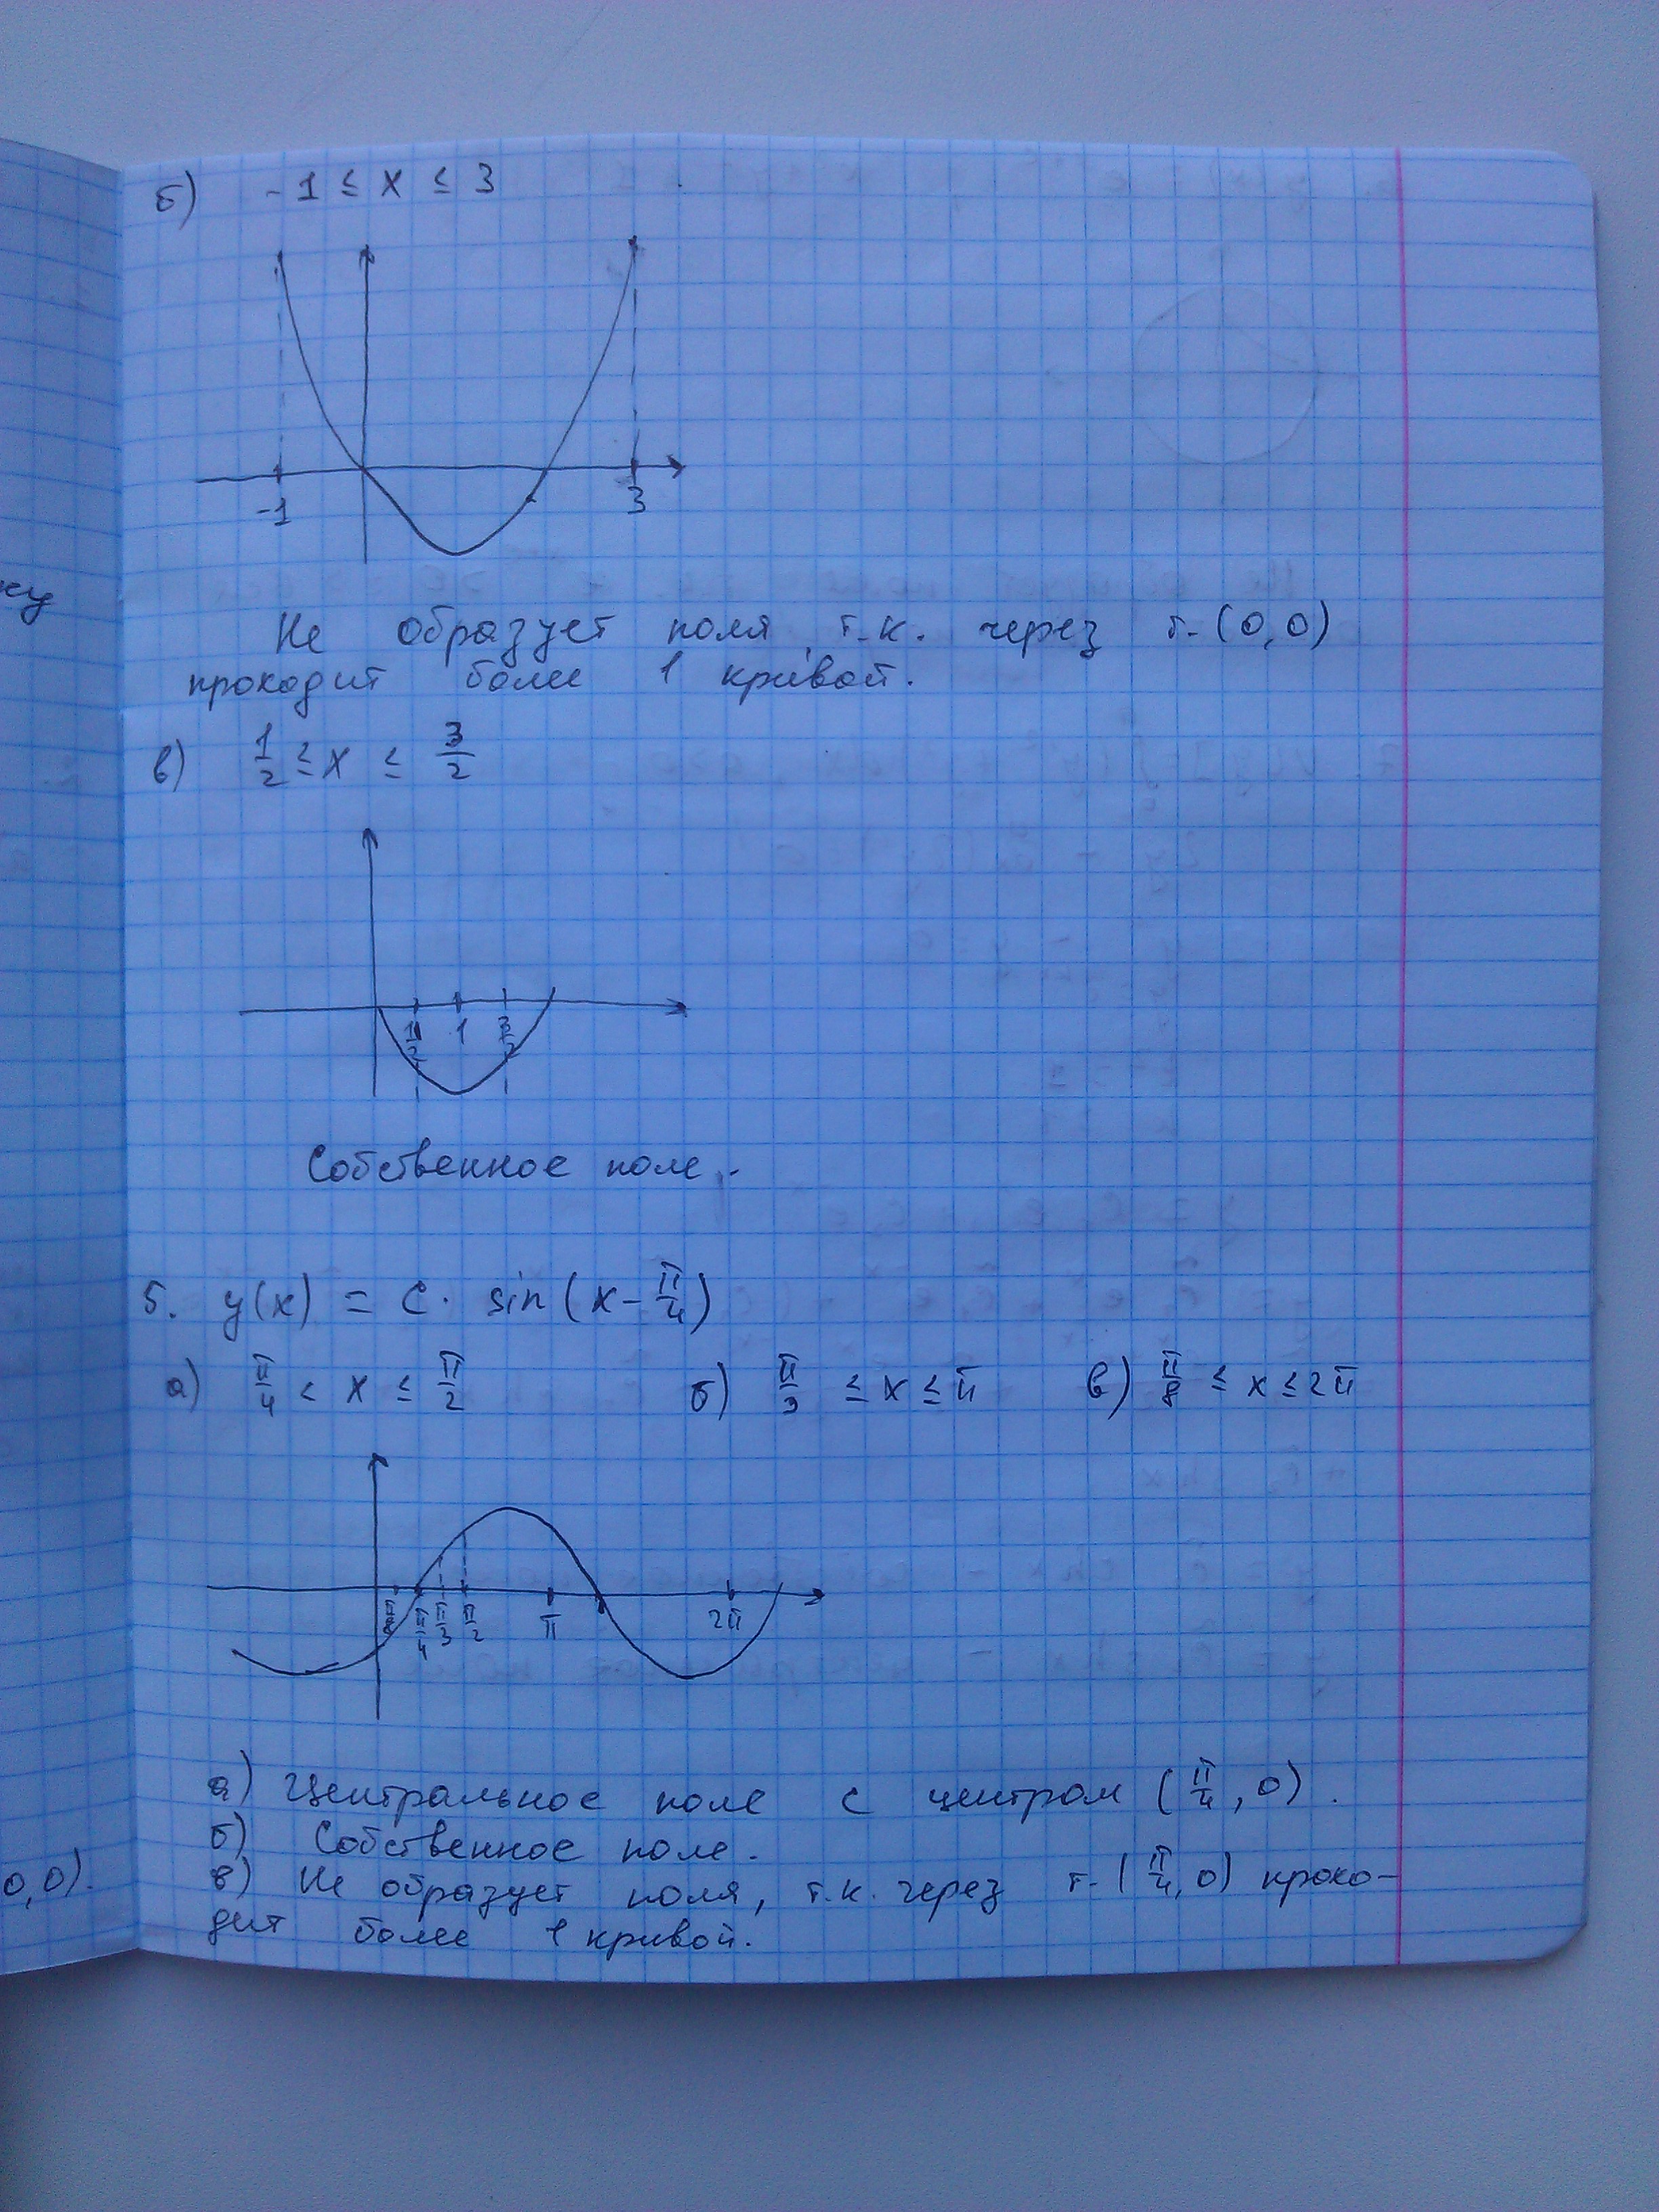 ку
б) -1 ≤ x ≤ 3
-1 3
Не образует поля, т.к. через т. (0,0)
проходит более 1 кривой.
в) 1/2 ≤ x ≤ 3/2
1/2 1 3/2
Собственное поле.
5. y(x) = C · sin(x - π/4)
а) π/4 ≤ x ≤ π/2 б) π/3 ≤ x ≤ π в) π/8 ≤ x ≤ 2π
π/8 π/4 π/3 π/2 π 2π
а) Центральное поле с центром (π/4, 0).
б) Собственное поле.
0,0).
в) Не образует поля, т.к. через т. (π/4, 0) прохо-
дит более 1 кривой.